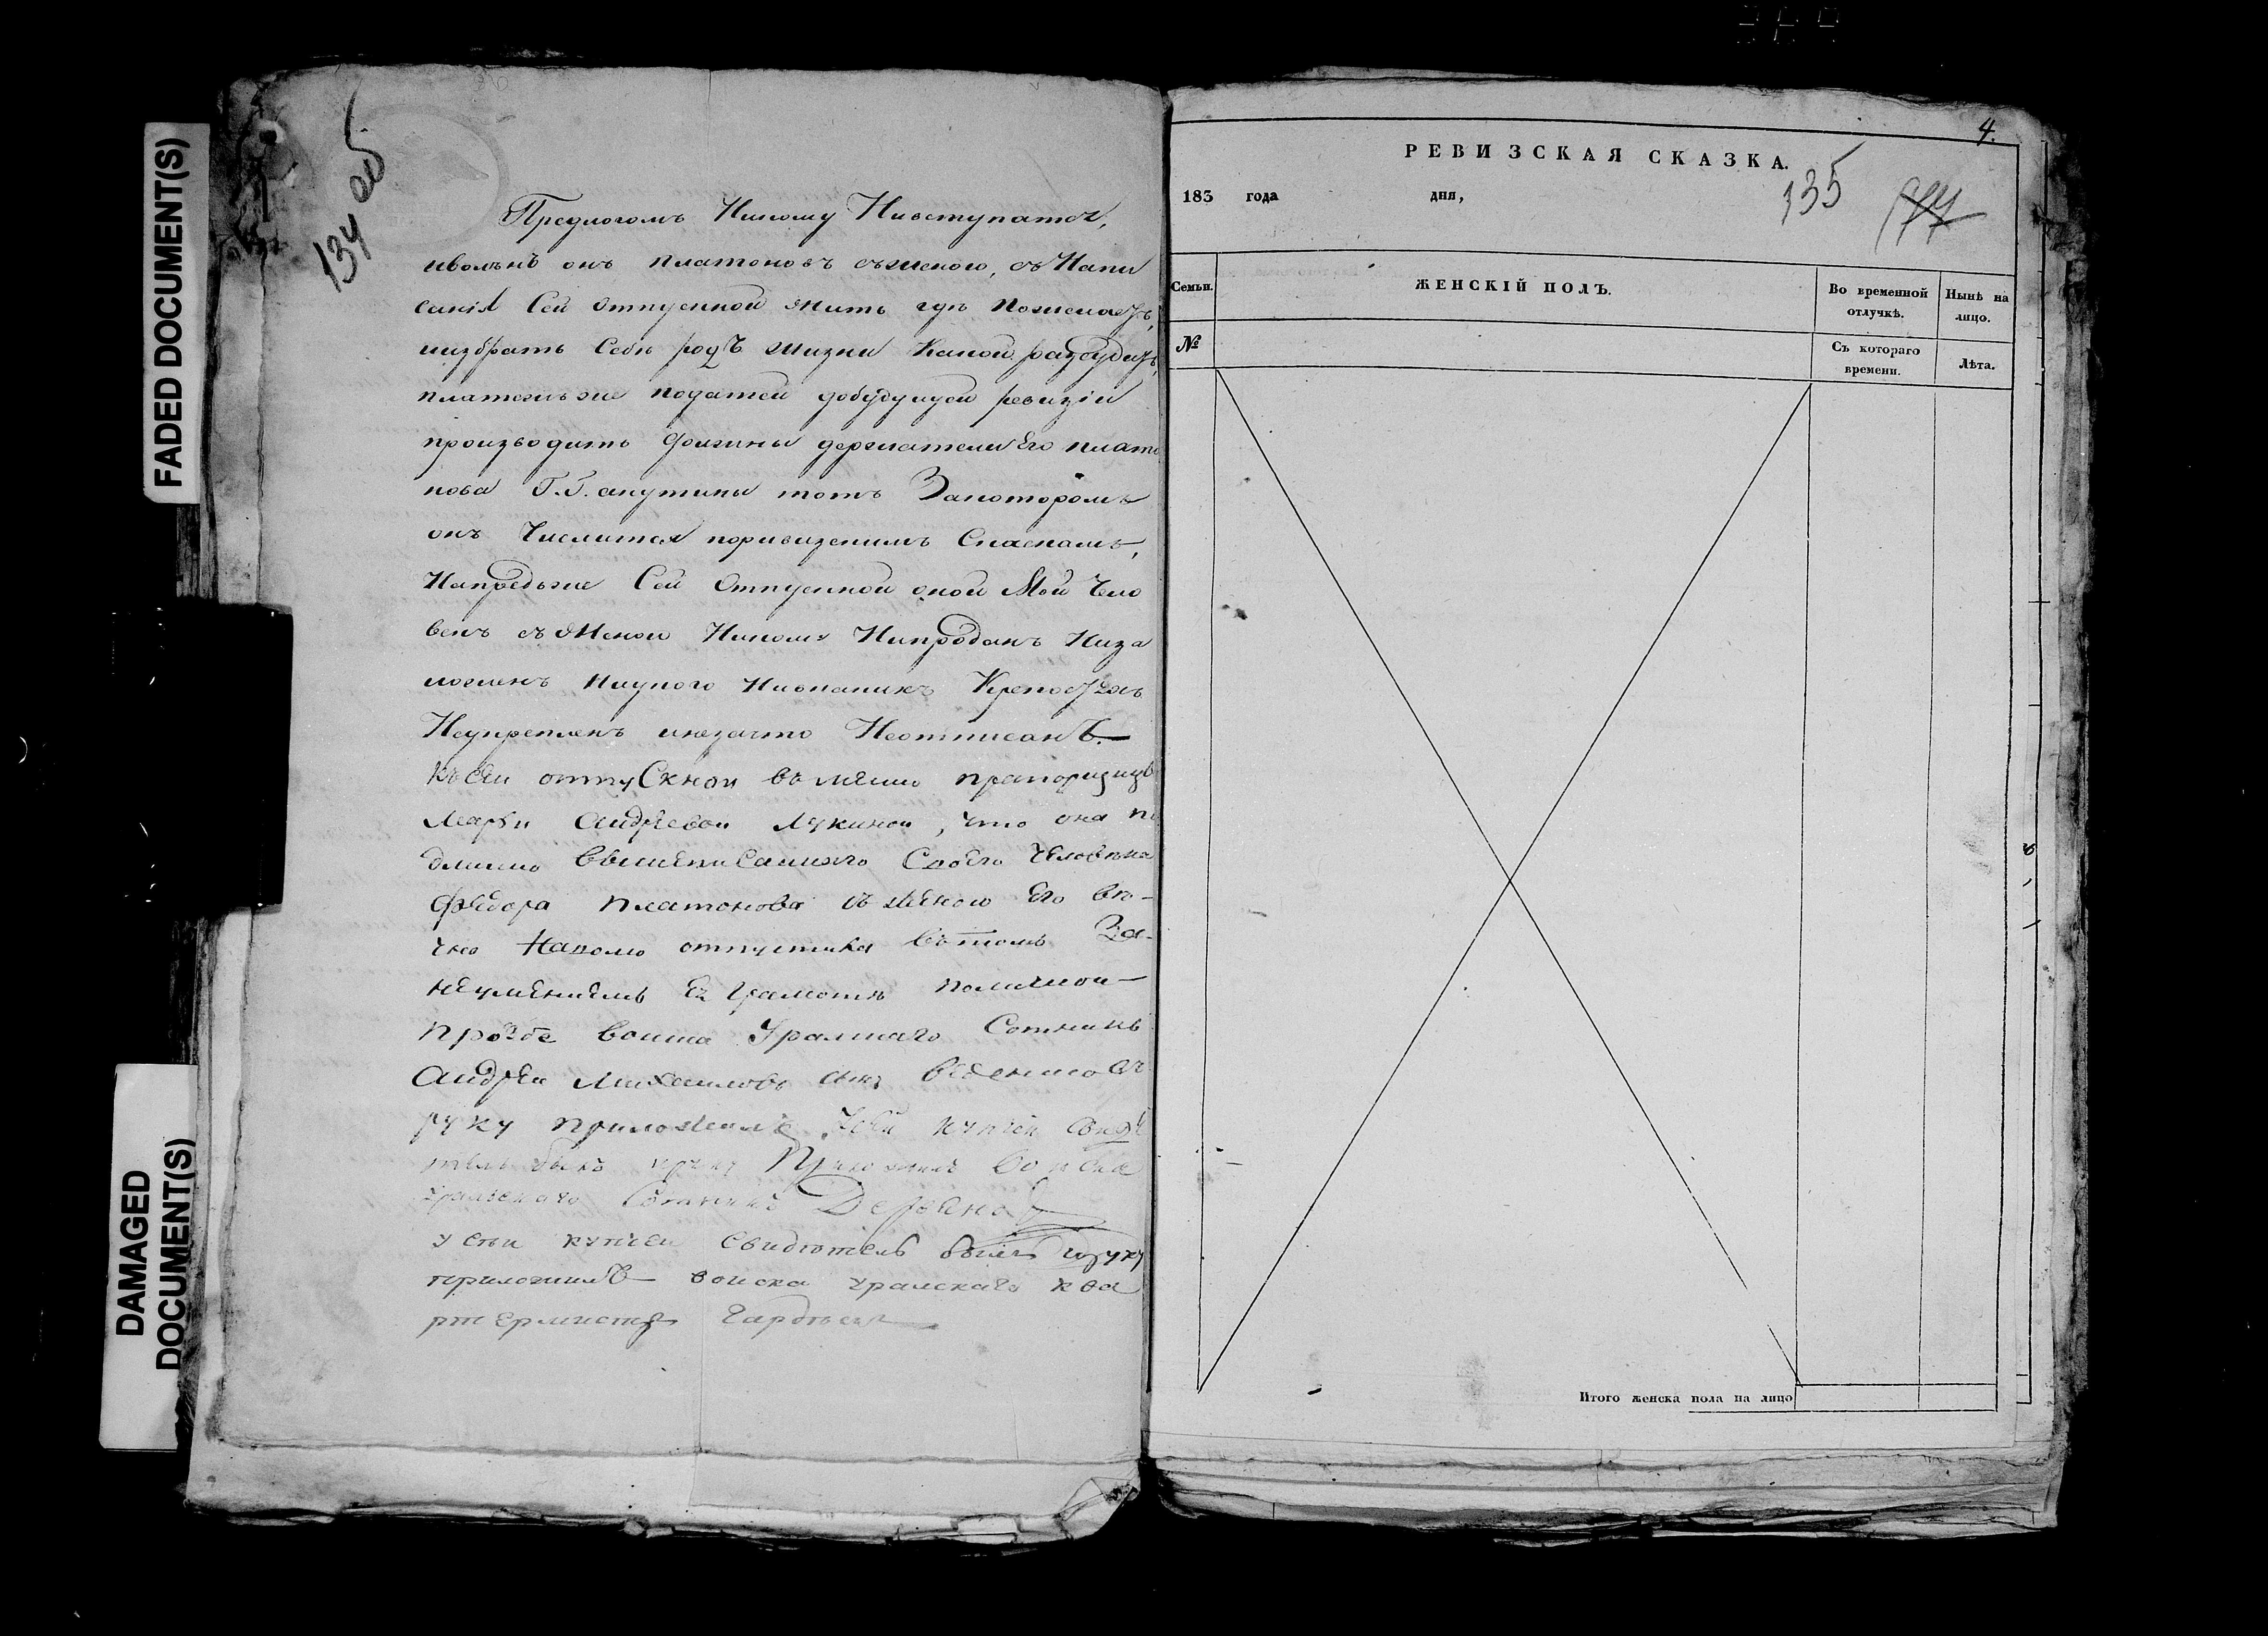 FADED DOCUMENT(S)
DAMAGED
DOCUMENT(S)
134 об.
Предлогомъ Никому Нивступатся,
иволѣнъ онъ платоновъ съженою, съ Напи
санія Сей отпускной жить гдѣ пожелаетъ,
иизбрать Себѣ родъ жизни Какой разсудитъ,
платежъже податей добудущей ревизіи
производить должны держатели Его плато
нова Г.Г. акутины тотъ Закоторомъ
онъ Числится поривизскимъ Сказкамъ,
Напредьже Сей Отпускной оной Мой Чело
векъ съ Женою Никому Нипроданъ Низа
ложенъ Ниукого Нивкакихъ Крепостяхъ
Неукрепленъ инизачто Неотписанъ.
Къ сеи отпускнои въместо прапорщицы
Марьи андреевои Лукинои, что она по
длинно вышеписаннаго Своего Человѣка
федора платонова съ женою Его вѣ-
чно Наволю отпустила Вътомъ За-
неуменіемъ Ея Грамотѣ поличнои
прозбе воиска Уралскаго Сотникъ
андреи Михаиловъ сынъ
руку приложилъ
тель былъ и руку Приложилъ воиска
уральскаго Сотникъ
у сеи купчеи Свидѣтель былъ ируку
приложилъ воиска уралскаго ква
ртермистръ
4.
РЕВИЗСКАЯ СКАЗКА.
183 года дня,
135
Семьи. ЖЕНСКІЙ ПОЛЪ. Во временной отлучкѣ. Нынѣ на лицо.
№ Съ котораго времени. Лѣта.
Итого женска пола на лицо